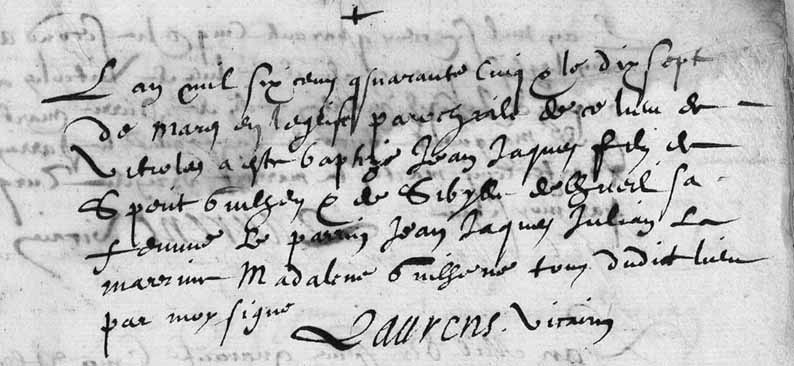 L an mil six cens quarante cinq & le dix sept
de mars en leglise parochialle de ce lieu de
Vitrolles a este baptize Jean Jaques filz de
Sperit Guilhen & de Sibylle sa
femme Le parrin Jean Jaques Julian La
marrine Madalene Guilhene tous dudict lieu
par moy signe
Laurens. Vicaire